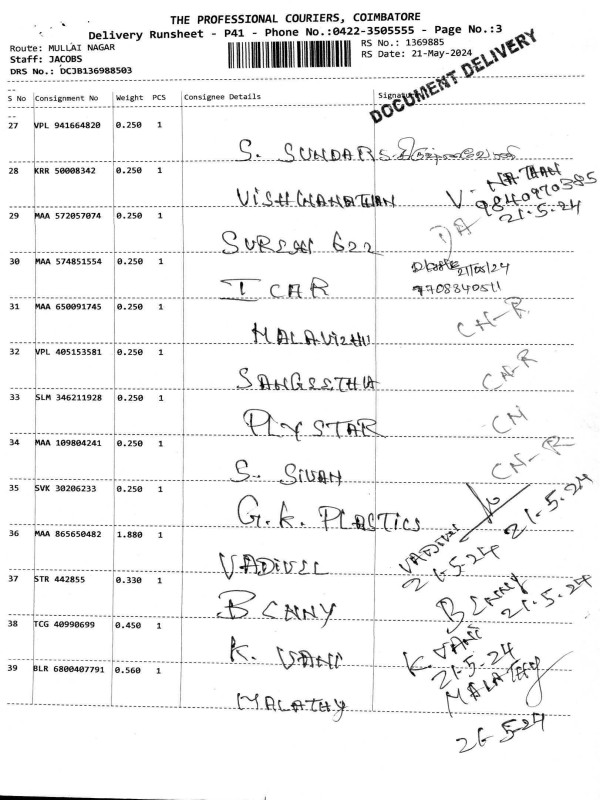 THE PROFESSIONAL COURIERS, COIMBATORE
Delivery Runsheet - P41 - Phone No.:0422-3505555 - Page No.:3
Route: MULLAI NAGAR
Staff: JACOBS
DRS No.: DCJB136988503
RS No.: 1369885
RS Date: 21-May-2024
DOCUMENT DELIVERY
S No Consignment No Weight PCS Consignee Details Signature
27 VPL 941664820 0.250 1 S. SUNDAR S
28 KRR 50008342 0.250 1 VISHWANATHAN V. NATHAN
9840970385
21-5-24
29 MAA 572057074 0.250 1 SURESH 622 DA
30 MAA 574851554 0.250 1 I CAR 21/05/24
7708840511
31 MAA 650091745 0.250 1 MALAVIZHI CN-R
32 VPL 405153581 0.250 1 SANGEETHA CN-R
33 SLM 346211928 0.250 1 PLY STAR CN
34 MAA 109804241 0.250 1 S. SIVAN CN-R
35 SVK 30206233 0.250 1 G.K. PLASTICS 21-5-24
36 MAA 865650482 1.880 1 VADIVEL VADIVEL
21-5-24
37 STR 442855 0.330 1 BENNY BENNY
21-5-24
38 TCG 40990699 0.450 1 K. VANI K. VANI
21-5-24
39 BLR 6800407791 0.560 1 MALATHY MALATHY
21-5-24